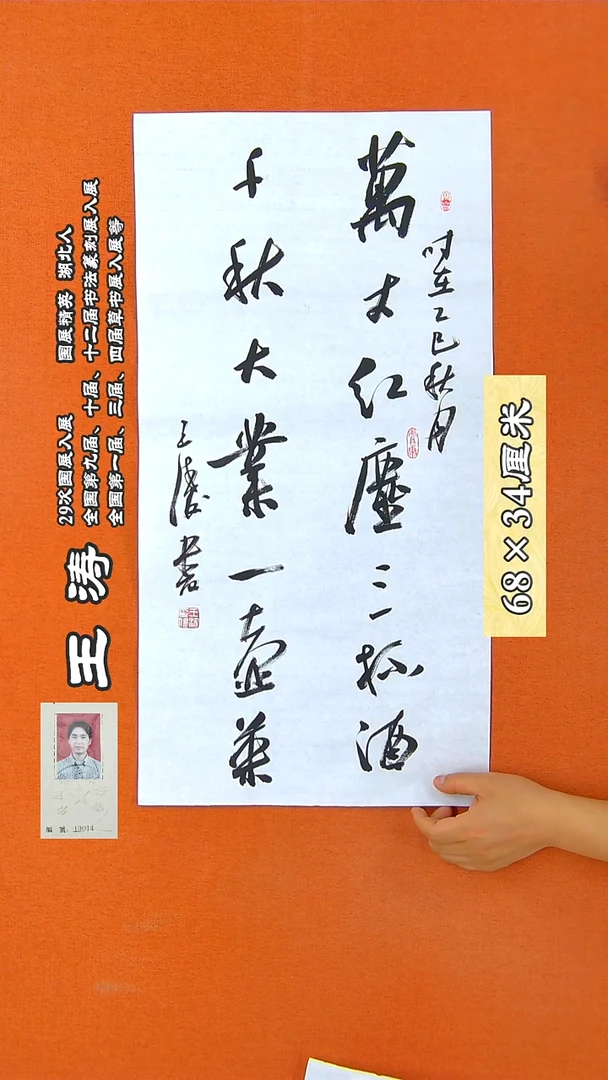 时在乙巳秋月
萬丈红塵三杯酒
千秋大業一壶茶
王濤书
68×34厘米
29次国展入展 国展精英 湖北人
全国第九届、十届、十二届书法篆刻展入展
全国第一届、三届、四届草书展入展等
王涛